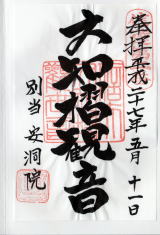 奉拝 平成二十七年五月十一日
文知摺観音
別当 安洞院